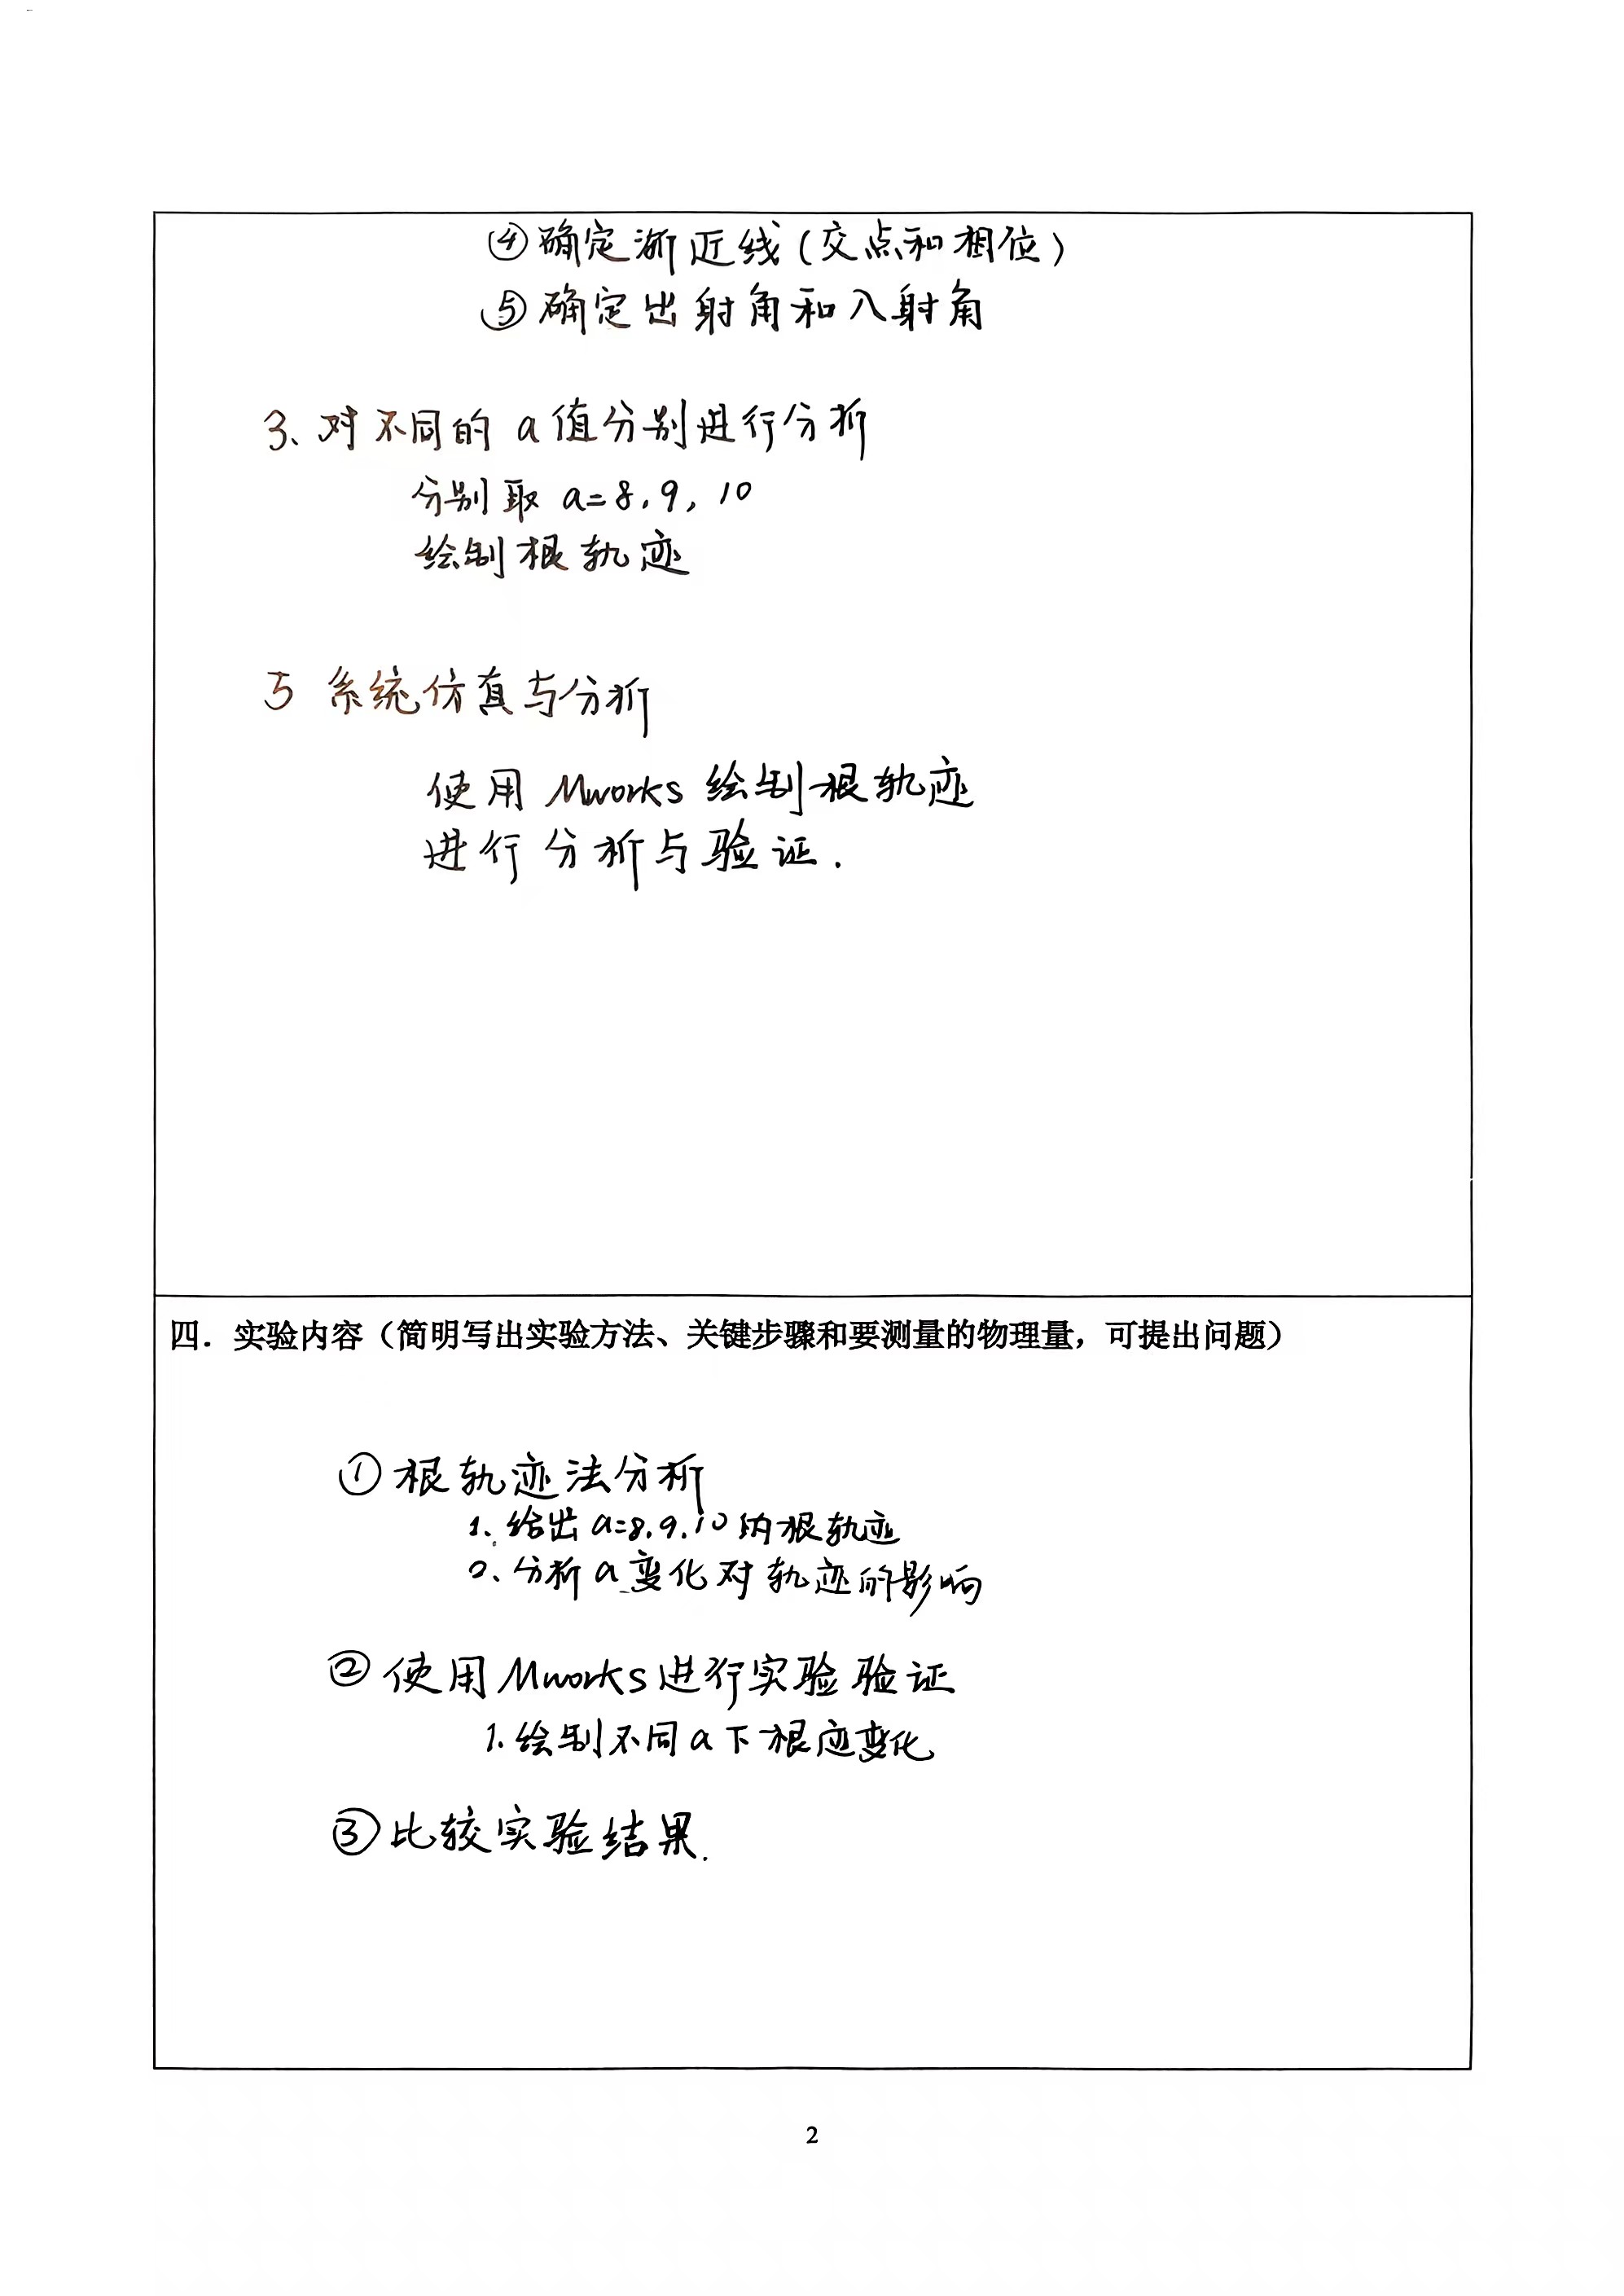 ④确定渐近线(交点和相位)
⑤确定出射角和入射角
3、对不同的a值分别进行分析
分别取 a=8,9,10
绘制根轨迹
5 系统仿真与分析
使用 Mworks 绘制根轨迹
进行分析与验证.
四.实验内容(简明写出实验方法、关键步骤和要测量的物理量,可提出问题)
①根轨迹法分析
1.给出a=8.9.10的根轨迹
2、分析a变化对轨迹的影响
②使用Mworks进行实验验证
1.绘制不同a下根迹变化
③比较实验结果.
2